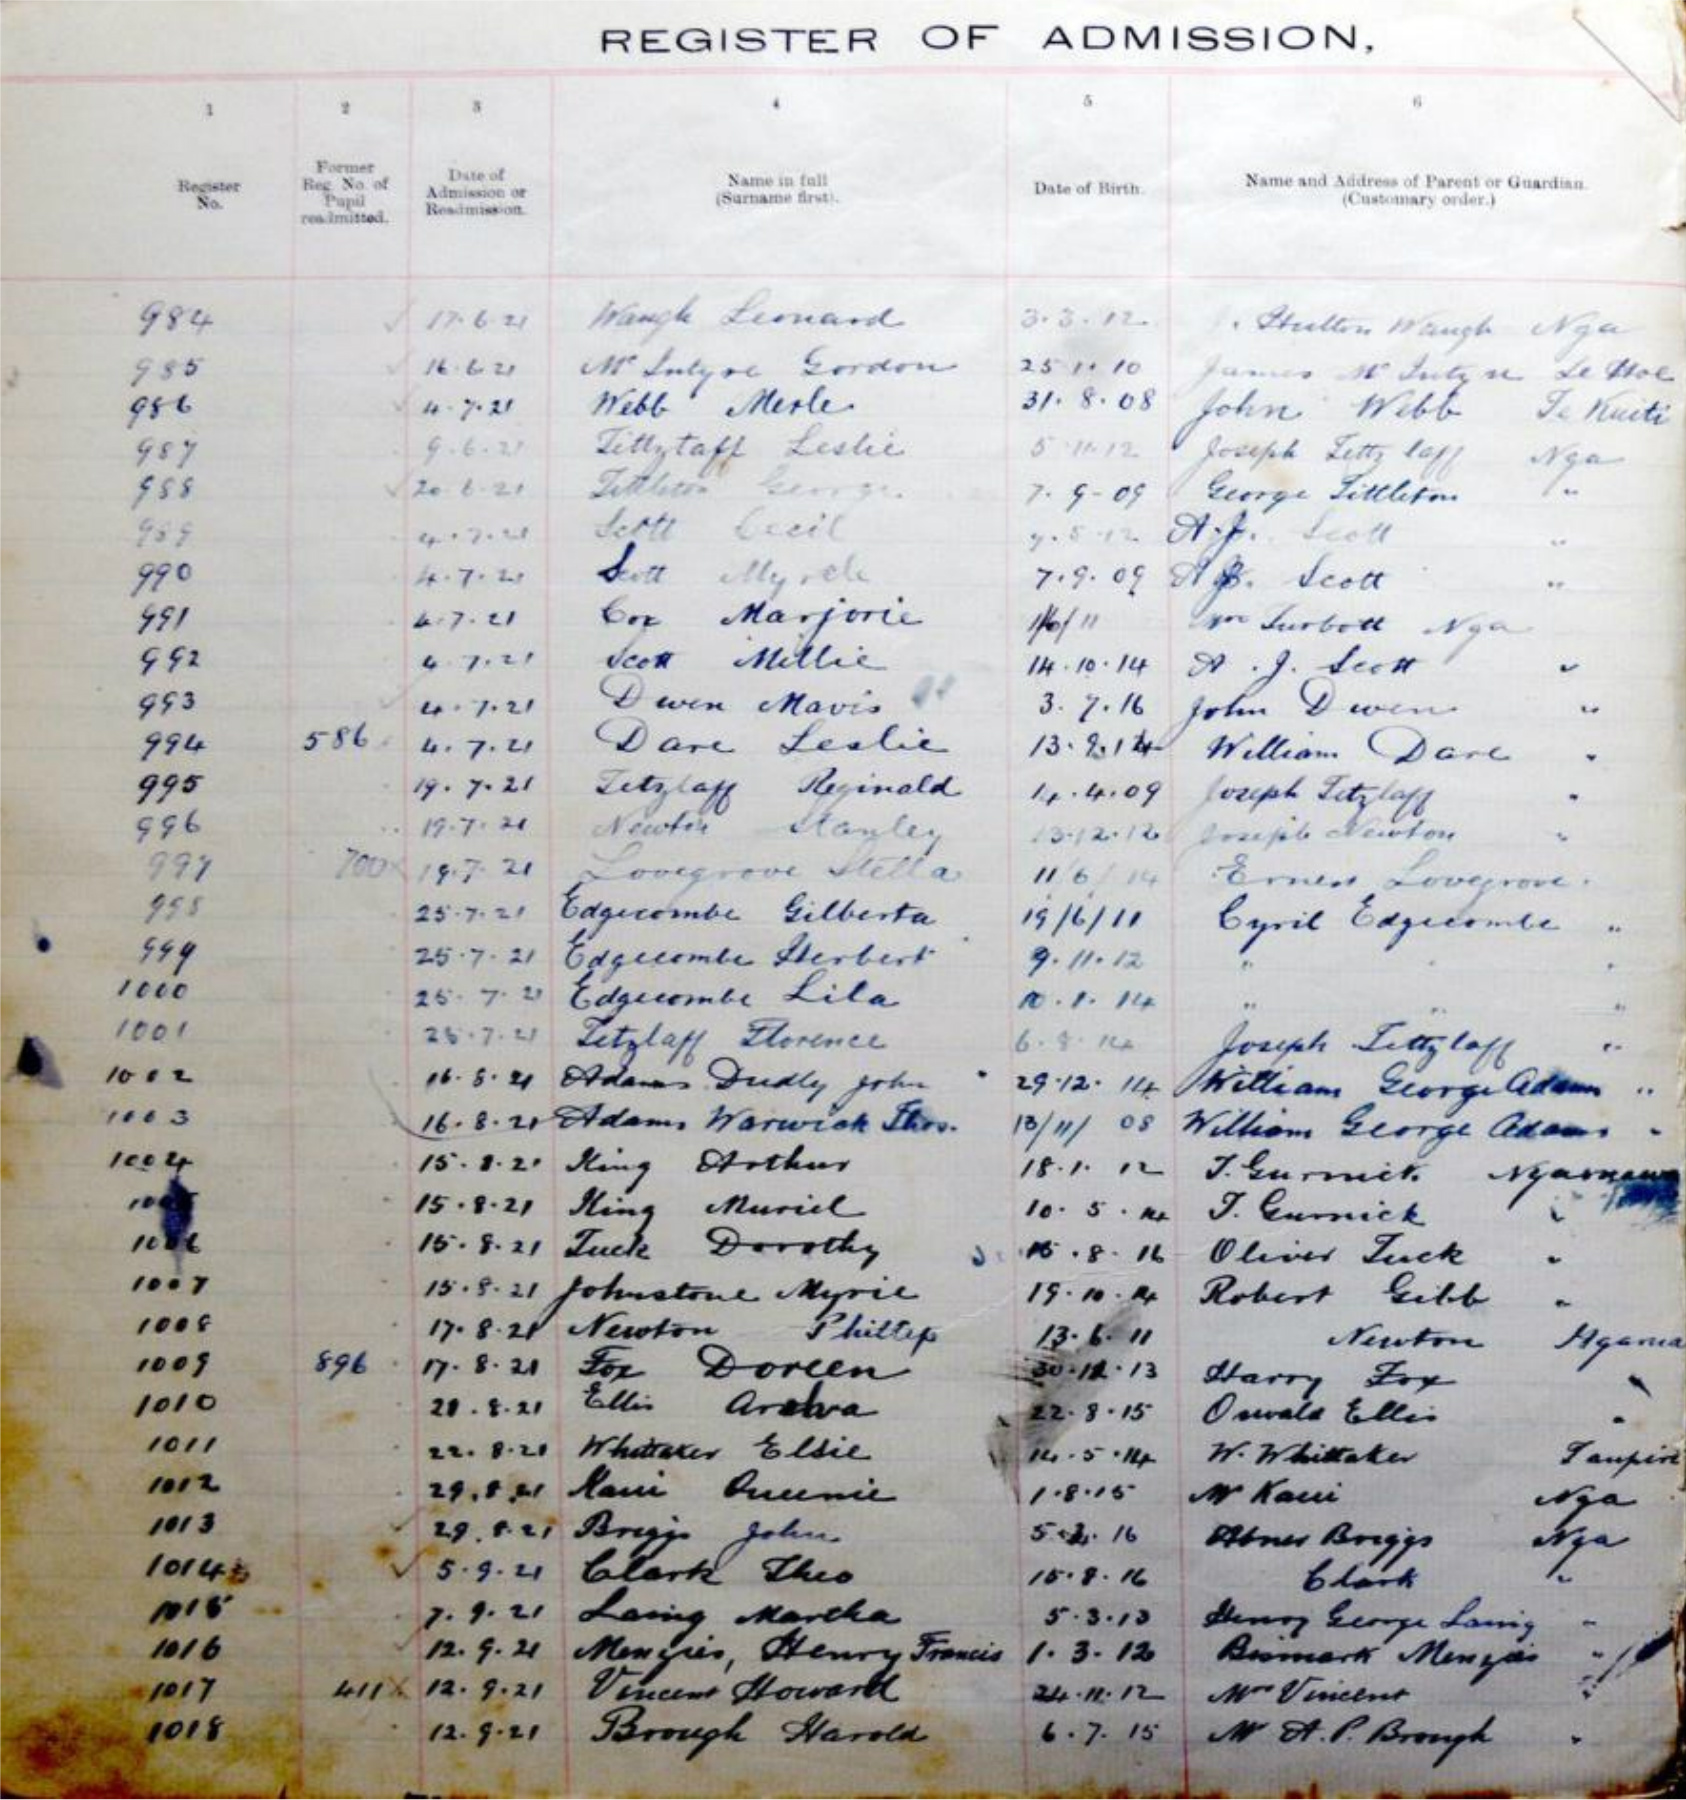 REGISTER OF ADMISSION.
1 2 3 4 5 6
Register No. Former Reg. No. of Pupil readmitted. Date of Admission or Readmission. Name in full (Surname first). Date of Birth. Name and Address of Parent or Guardian. (Customary order.)
984 17.6.21 Waugh Leonard 3.3.12 Hutton Waugh Nga
985 16.6.21 McIntyre Gordon 25.1.10 James McIntyre
986 4.7.21 Webb Merle 31.8.08 John Webb Te Kuiti
987 9.6.21 Tettztaff Leslie 5.11.12 Joseph Tettzlaff Nga
988 20.6.21 Tittleton George 7.9-09 George Tittleton "
989 4.7.21 Scott Cecil 9.5.12 A.J. Scott "
990 4.7.21 Scott Myrtle 7.9.09 A.J. Scott "
991 4.7.21 Cox Marjorie 1/6/11 Mrs Turbott Nga
992 4.7.21 Scott Millie 14.10.14 A.J. Scott "
993 4.7.21 Dwen Mavis 3.7.16 John Dwen "
994 586 4.7.21 Dare Leslie 13.9.14 William Dare "
995 19.7.21 Tetzlaff Reginald 14.4.09 Joseph Tetzlaff "
996 19.7.21 Newton Stanley 13.12.12 Joseph Newton "
997 700 19.7.21 Lovegrove Stella 11/6/14 Ernest Lovegrove.
998 25.7.21 Edgecombe Gilberta 19/6/11 Cyril Edgecombe "
999 25.7.21 Edgecombe Herbert 9.11.12 " " "
1000 25.7.21 Edgecombe Lila 10.1.14 " " "
1001 25.7.21 Tetzlaff Florence 6.8.14 Joseph Tettzlaff "
1002 16.8.21 Adams Dudly John 29.12.14 William George Adams "
1003 16.8.21 Adams Warwick Thos. 13/11/08 William George Adams "
1004 15.8.21 King Arthur 18.1.12 T. Gurnick
1005 15.8.21 King Muriel 10.5.14 T. Gurnick "
1006 15.8.21 Tuck Dorothy 15.8.16 Oliver Tuck "
1007 15.8.21 Johnstone Myrie 19.10.14 Robert Gibb "
1008 17.8.21 Newton Phillip 13.6.11 Newton
1009 896 17.8.21 Fox Doreen 30.12.13 Harry Fox "
1010 Ellis Arahva 22.8.15 Oswald Ellis "
1011 22.8.21 Whittaker Elsie 14.5.14 W. Whittaker Taupiri
1012 29.8.21 Kaui Queenie 1.8.15 Mr Kaui Nga
1013 29.8.21 Briggs John 16 Abner Briggs Nga
1014 5.9.21 Clark Theo 15.8.16 Clark "
1015 7.9.21 Laing Martha 5.3.13 Henry George Laing "
1016 12.9.21 Menzies, Henry Francis 1.3.12 Bismark Menzies "
1017 411 12.9.21 Vincent Howard 24.11.12 Mrs Vincent "
1018 12.9.21 Brough Harold 6.7.15 Mr A.P. Brough "